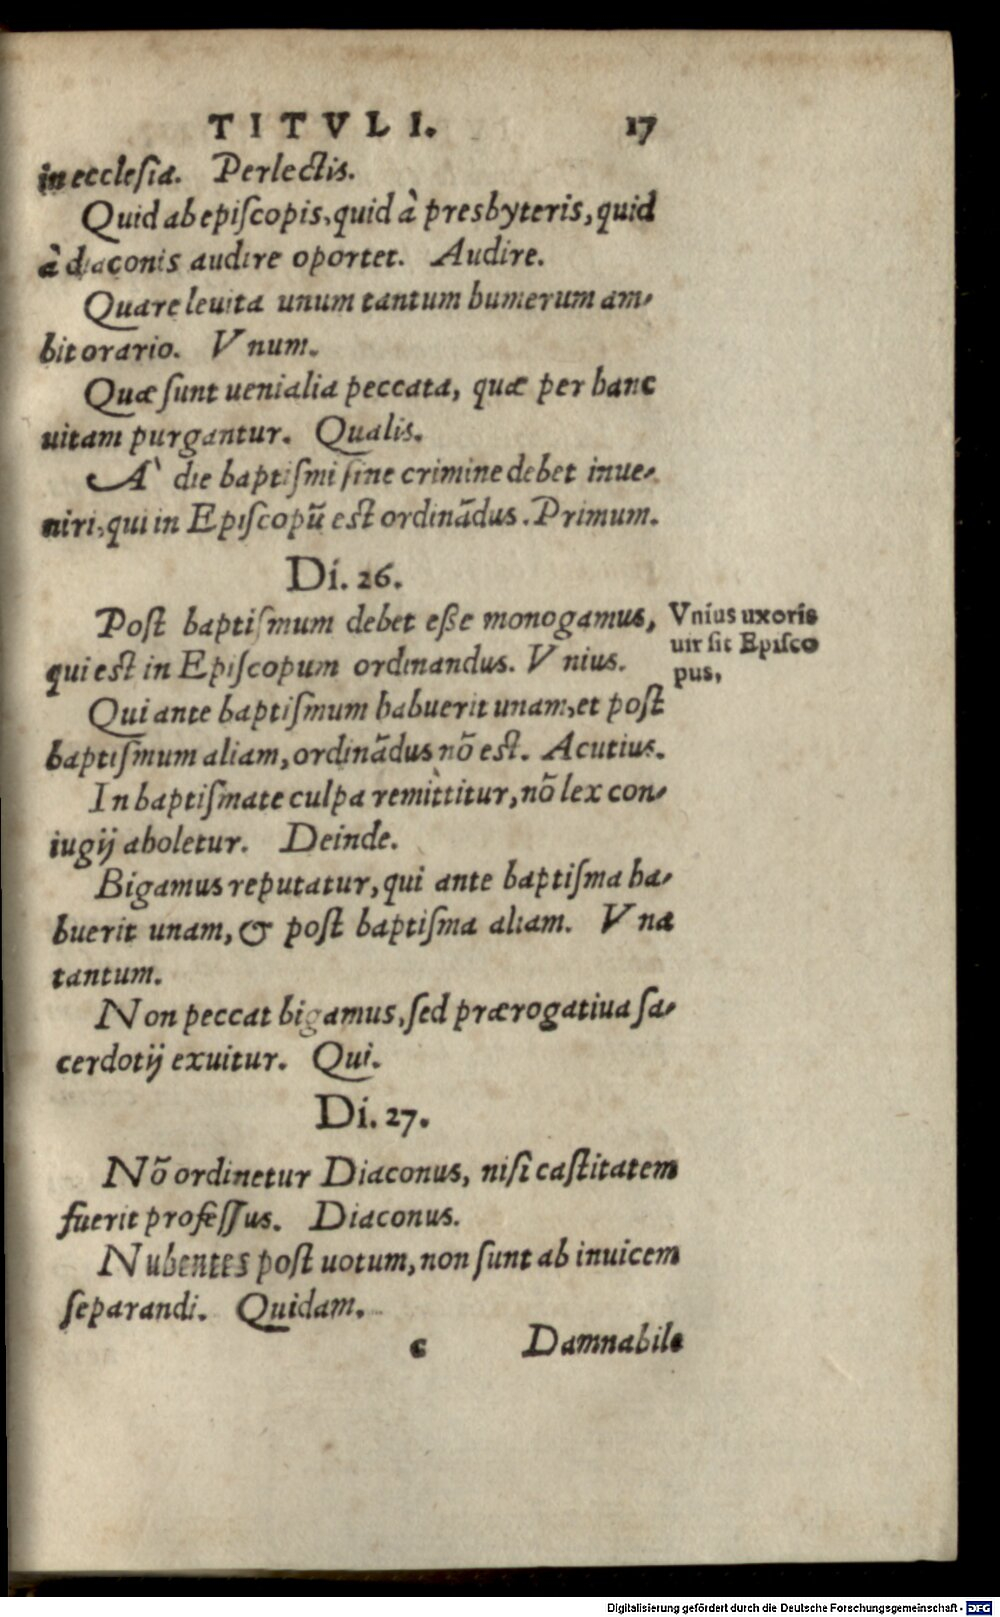 TITVLI. 17
in ecclesia. Perlectis.
Quid ab episcopis, quid à presbyteris, quid
à diaconis audire oportet. Audire.
Quare leuita unum tantum humerum am-
bit orario. Vnum.
Quæ sunt uenialia peccata, quæ per hanc
uitam purgantur. Qualis.
A' die baptismi sine crimine debet inue-
niri, qui in Episcopũ est ordinãdus. Primum.
Di. 26.
Post baptismum debet eße monogamus,
qui est in Episcopum ordinandus. Vnius.
Vnius uxoris
uir sit Episco
pus,
Qui ante baptismum habuerit unam, et post
baptismum aliam, ordinãdus nõ est. Acutius.
In baptismate culpa remittitur, nõ lex con-
iugij aboletur. Deinde.
Bigamus reputatur, qui ante baptisma ha-
buerit unam, & post baptisma aliam. Vna
tantum.
Non peccat bigamus, sed prærogatiua sa-
cerdotij exuitur. Qui.
Di. 27.
Nõ ordinetur Diaconus, nisi castitatem
fuerit professus. Diaconus.
Nubentes post uotum, non sunt ab inuicem
separandi. Quidam.
c Damnabile
Digitalisierung gefördert durch die Deutsche Forschungsgemeinschaft - DFG